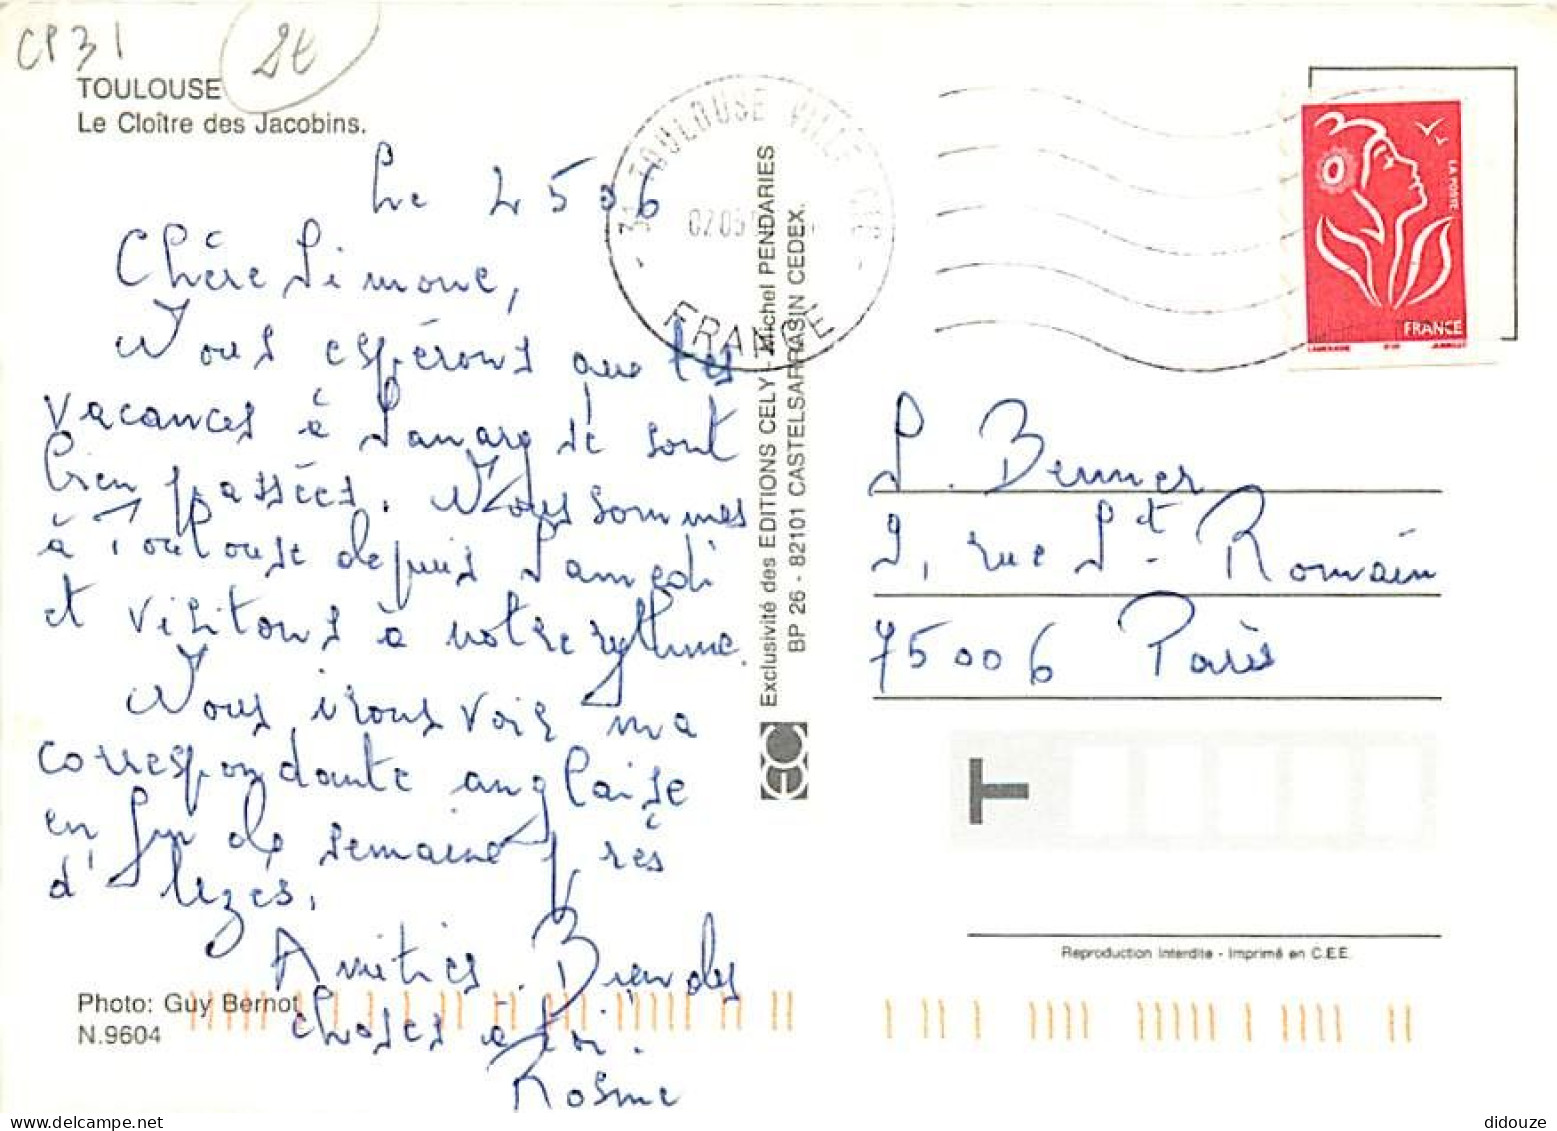 CP31
2€
TOULOUSE
Le Cloître des Jacobins.
31 TOULOUSE VILLE
FRANCE
LA POSTE
FRANCE
Le 2 5 06
Chère Simone,
Nous espérons que tes
vacances à Sanary se sont
bien passées. Nous sommes
à Toulouse depuis Samedi
et visitons à notre rythme.
Nous irons voir ma
correspondante anglaise
en fin de semaine près
d'Uzès.
Amitiés. Bien des
choses à toi.
Rosine
Exclusivité des EDITIONS CELY - Michel PENDARIES
BP 26 - 82101 CASTELSARRASIN CEDEX.
S. Benner
9, rue St. Romain
75006 Paris
T
Reproduction Interdite - Imprimé en C.E.E.
Photo: Guy Bernot
N.9604
didouze